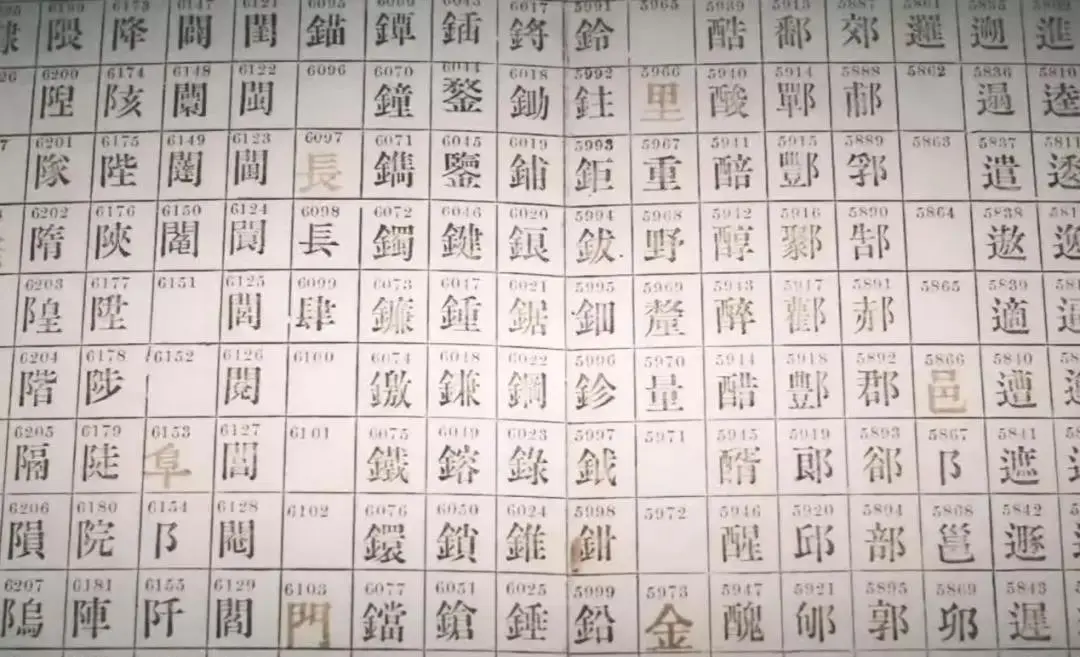 進 5810 逵 5811 逶
遡 5836 過 5837 遣 5838 遨 5839 適 5840 遭 5841 遮 5842 遯 5843 遲
5861 邏 5862 5863 5864 5865 5866 邑 5867 阝 5868 邕 5869
5887 郊 5888 5889 郛 5890 郜 5891 郝 5892 郡 5893 郤 5894 部 5895 郭
5913 鄱 5914 鄲 5915 酆 5916 鄹 5917 酄 5918 酆 5919 郎 5920 邱 5921
5939 酷 5940 酸 5941 醅 5942 醇 5943 醉 5944 醋 5945 醑 5946 醒 5947 醜
5965 5966 里 5967 重 5968 野 5969 釐 5970 量 5971 5972 5973 金
5991 鈴 5992 鉒 5993 鉅 5994 鈸 5995 鈿 5996 鉁 5997 鉞 5998 鉗 5999 鉛
6017 6018 鋤 6019 鋪 6020 鋃 6021 鋸 6022 鋼 6023 錄 6024 錐 6025 錘
6043 鍤 6044 鍪 6045 鑒 6046 鍵 6047 鍾 6048 鎌 6049 鎔 6050 鎖 6051 鎗
6069 鐔 6070 鐘 6071 鐫 6072 鐲 6073 鐮 6074 6075 鐵 6076 鐶 6077 鐺
6095 錨 6096 6097 長 6098 長 6099 肆 6100 6101 6102 6103 門
6121 閨 6122 閩 6123 6124 閬 6125 閭 6126 閱 6127 6128 6129 閻
6147 6148 闌 6149 闥 6150 闔 6151 6152 6153 阜 6154 阝 6155 阡
6173 降 6174 陔 6175 陛 6176 陝 6177 陞 6178 陟 6179 陡 6180 院 6181 陣
6199 隈 6200 隉 6201 隊 6202 隋 6203 隍 6204 階 6205 隔 6206 隕 6207 隖